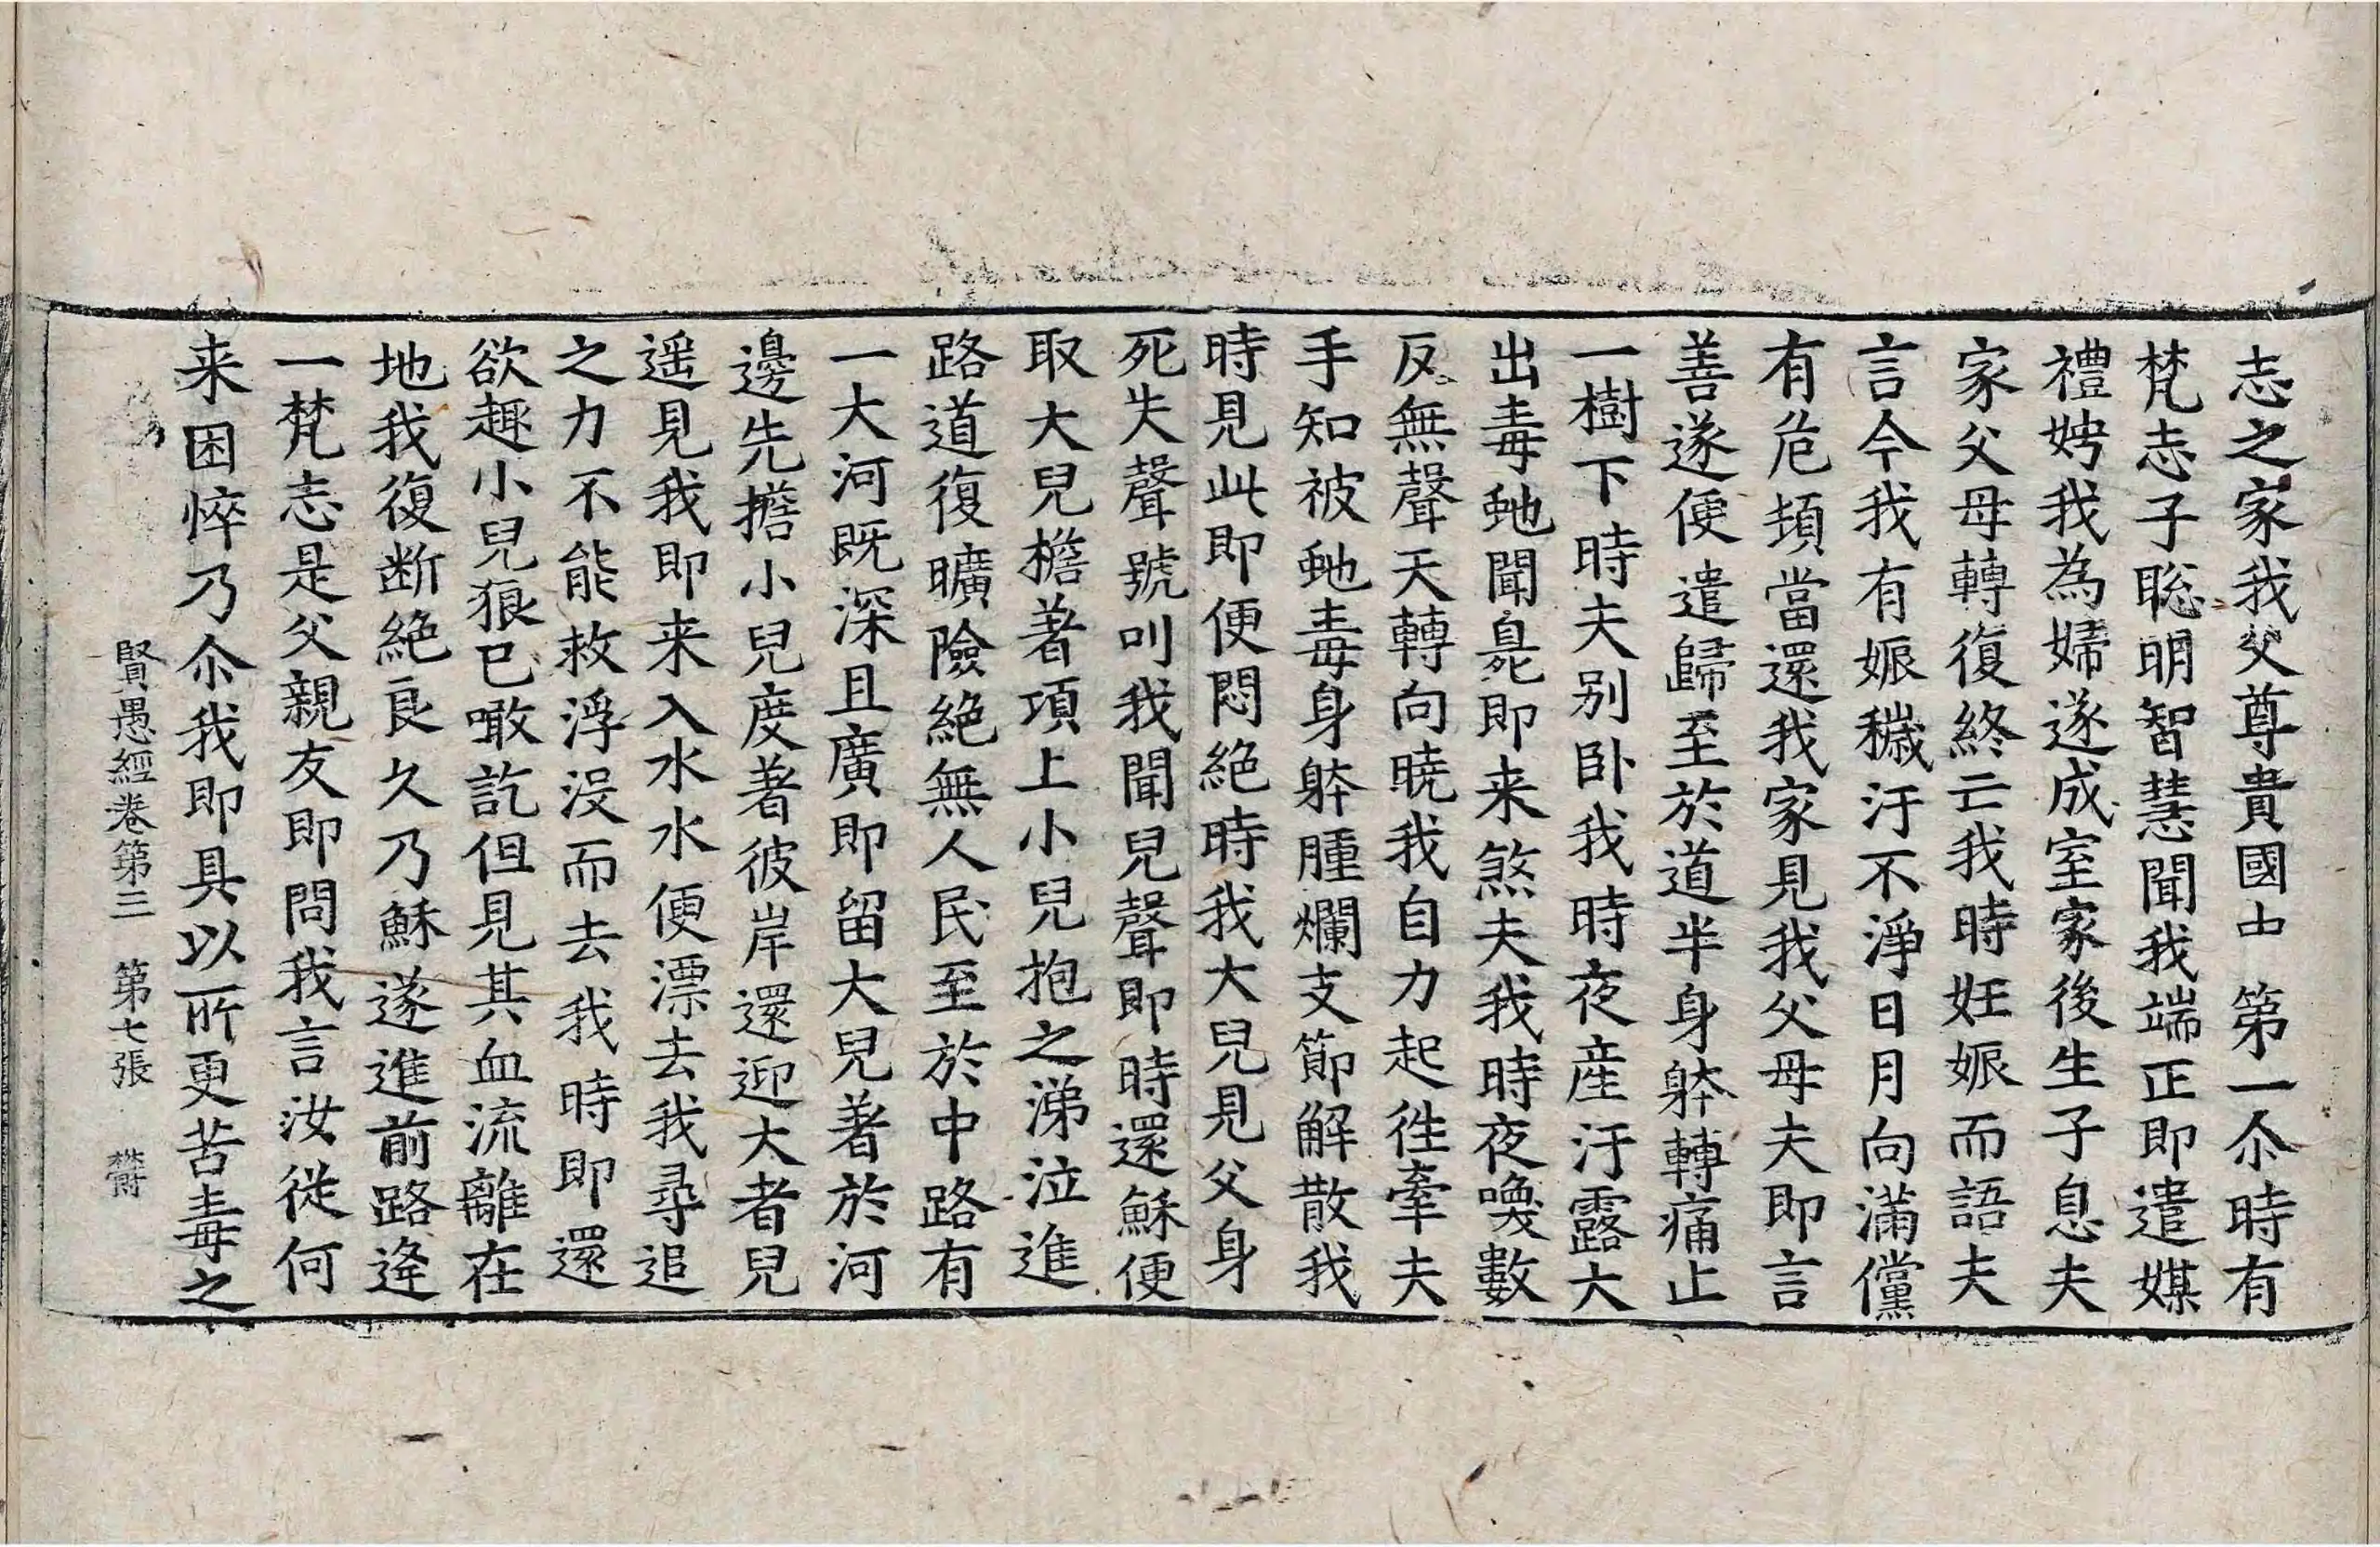 志之家我父尊貴國中第一尒時有
梵志子聡明智慧聞我端正即遣媒
禮娉我為婦遂成室家後生子息夫
家父母轉復終亡我時妊娠而語夫
言今我有娠穢汙不淨日月向滿儻
有危頓當還我家見我父母夫即言
善遂便遣歸至於道半身躰轉痛止
一樹下時夫別卧我時夜産汙露大
出毒虵聞臰即来煞夫我時夜喚數
反無聲天轉向曉我自力起徃牽夫
手知被虵毒身躰腫爛支節解散我
時見此即便悶絕時我大兒見父身
死失聲號叫我聞兒聲即時還穌便
取大兒檐著項上小兒抱之涕泣進
路道復曠險絕無人民至於中路有
一大河既深且廣即留大兒著於河
邊先擔小兒度著彼岸還迎大者兒
遥見我即来入水水便漂去我尋追
之力不能救浮沒而去我時即還
欲趣小兒狼已噉訖但見其血流離在
地我復断絕良久乃穌遂進前路逄
一梵志是父親友即問我言汝從何
来困悴乃尒我即具以所更苦毒之
賢愚經卷第三 第七張 欝